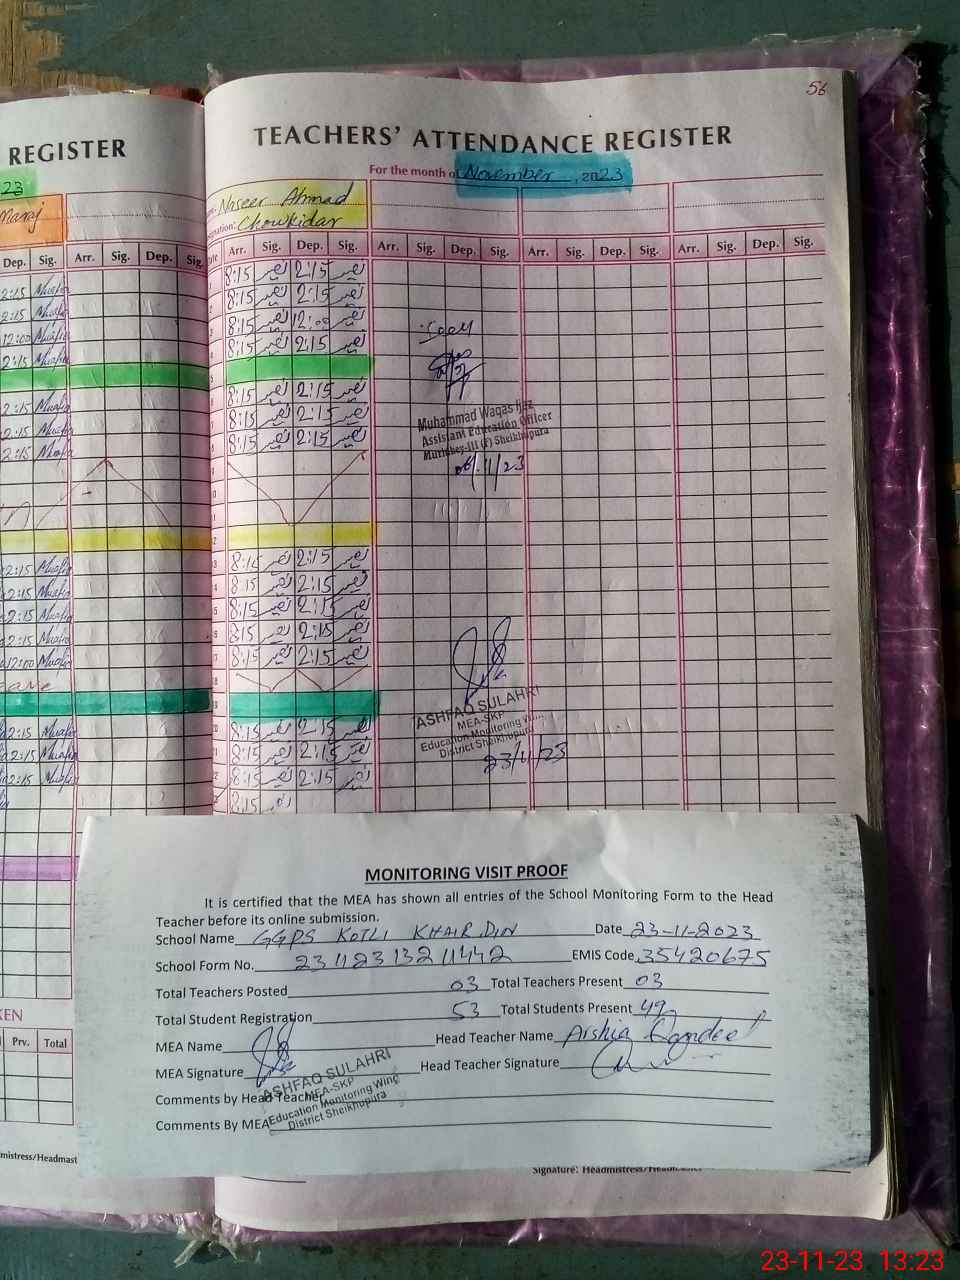 56
REGISTER
TEACHERS' ATTENDANCE REGISTER
For the month of November, 2023
23
Naseer Ahmad
Designation: Chowkidar
Dep. Sig. Arr. Sig. Dep. Sig.
Arr. Sig. Dep. Sig. Arr. Sig. Dep. Sig. Arr. Sig. Dep. Sig. Arr. Sig. Dep. Sig.
2:15 8:15 نصیر 2:15 نصیر
2:15 8:15 نصیر 2:15 نصیر
12:00 8:15 نصیر 12:00 نصیر
2:15 8:15 نصیر 2:15 نصیر
Seen
2:15 8:15 نصیر 2:15 نصیر
2:15 8:15 نصیر 2:15 نصیر
2:15 8:15 نصیر 2:15 نصیر
Muhammad Waqas Ijaz
Assistant Education Officer
Muridkey-III (F) Sheikhupura
06/11/23
2:15 8:15 نصیر 2:15 نصیر
2:15 8:15 نصیر 2:15 نصیر
2:15 8:15 نصیر 2:15 نصیر
2:15 8:15 نصیر 2:15 نصیر
12:00 8:15 نصیر 2:15 نصیر
2:15 8:15 نصیر 2:15 نصیر
2:15 8:15 نصیر 2:15 نصیر
2:15 8:15 نصیر 2:15 نصیر
8:15 نصیر
ASHFAQ SULAHRI
MEA-SKP
Education Monitoring Wing
District Sheikhupura
23/11/23
MONITORING VISIT PROOF
It is certified that the MEA has shown all entries of the School Monitoring Form to the Head
Teacher before its online submission.
School Name GGPS KOTLI KHAIR DIN Date 23-11-2023
School Form No. 231123132 11442 EMIS Code 35420675
Total Teachers Posted 03 Total Teachers Present 03
Total Student Registration 53 Total Students Present 49
MEA Name Head Teacher Name Arshia
MEA Signature Head Teacher Signature
ASHFAQ SULAHRI
MEA-SKP
Education Monitoring Wing
District Sheikhupura
Comments by Head Teacher
Comments By MEA
Prv. Total
Signature: Headmistress/Headmaster
23-11-23 13:23